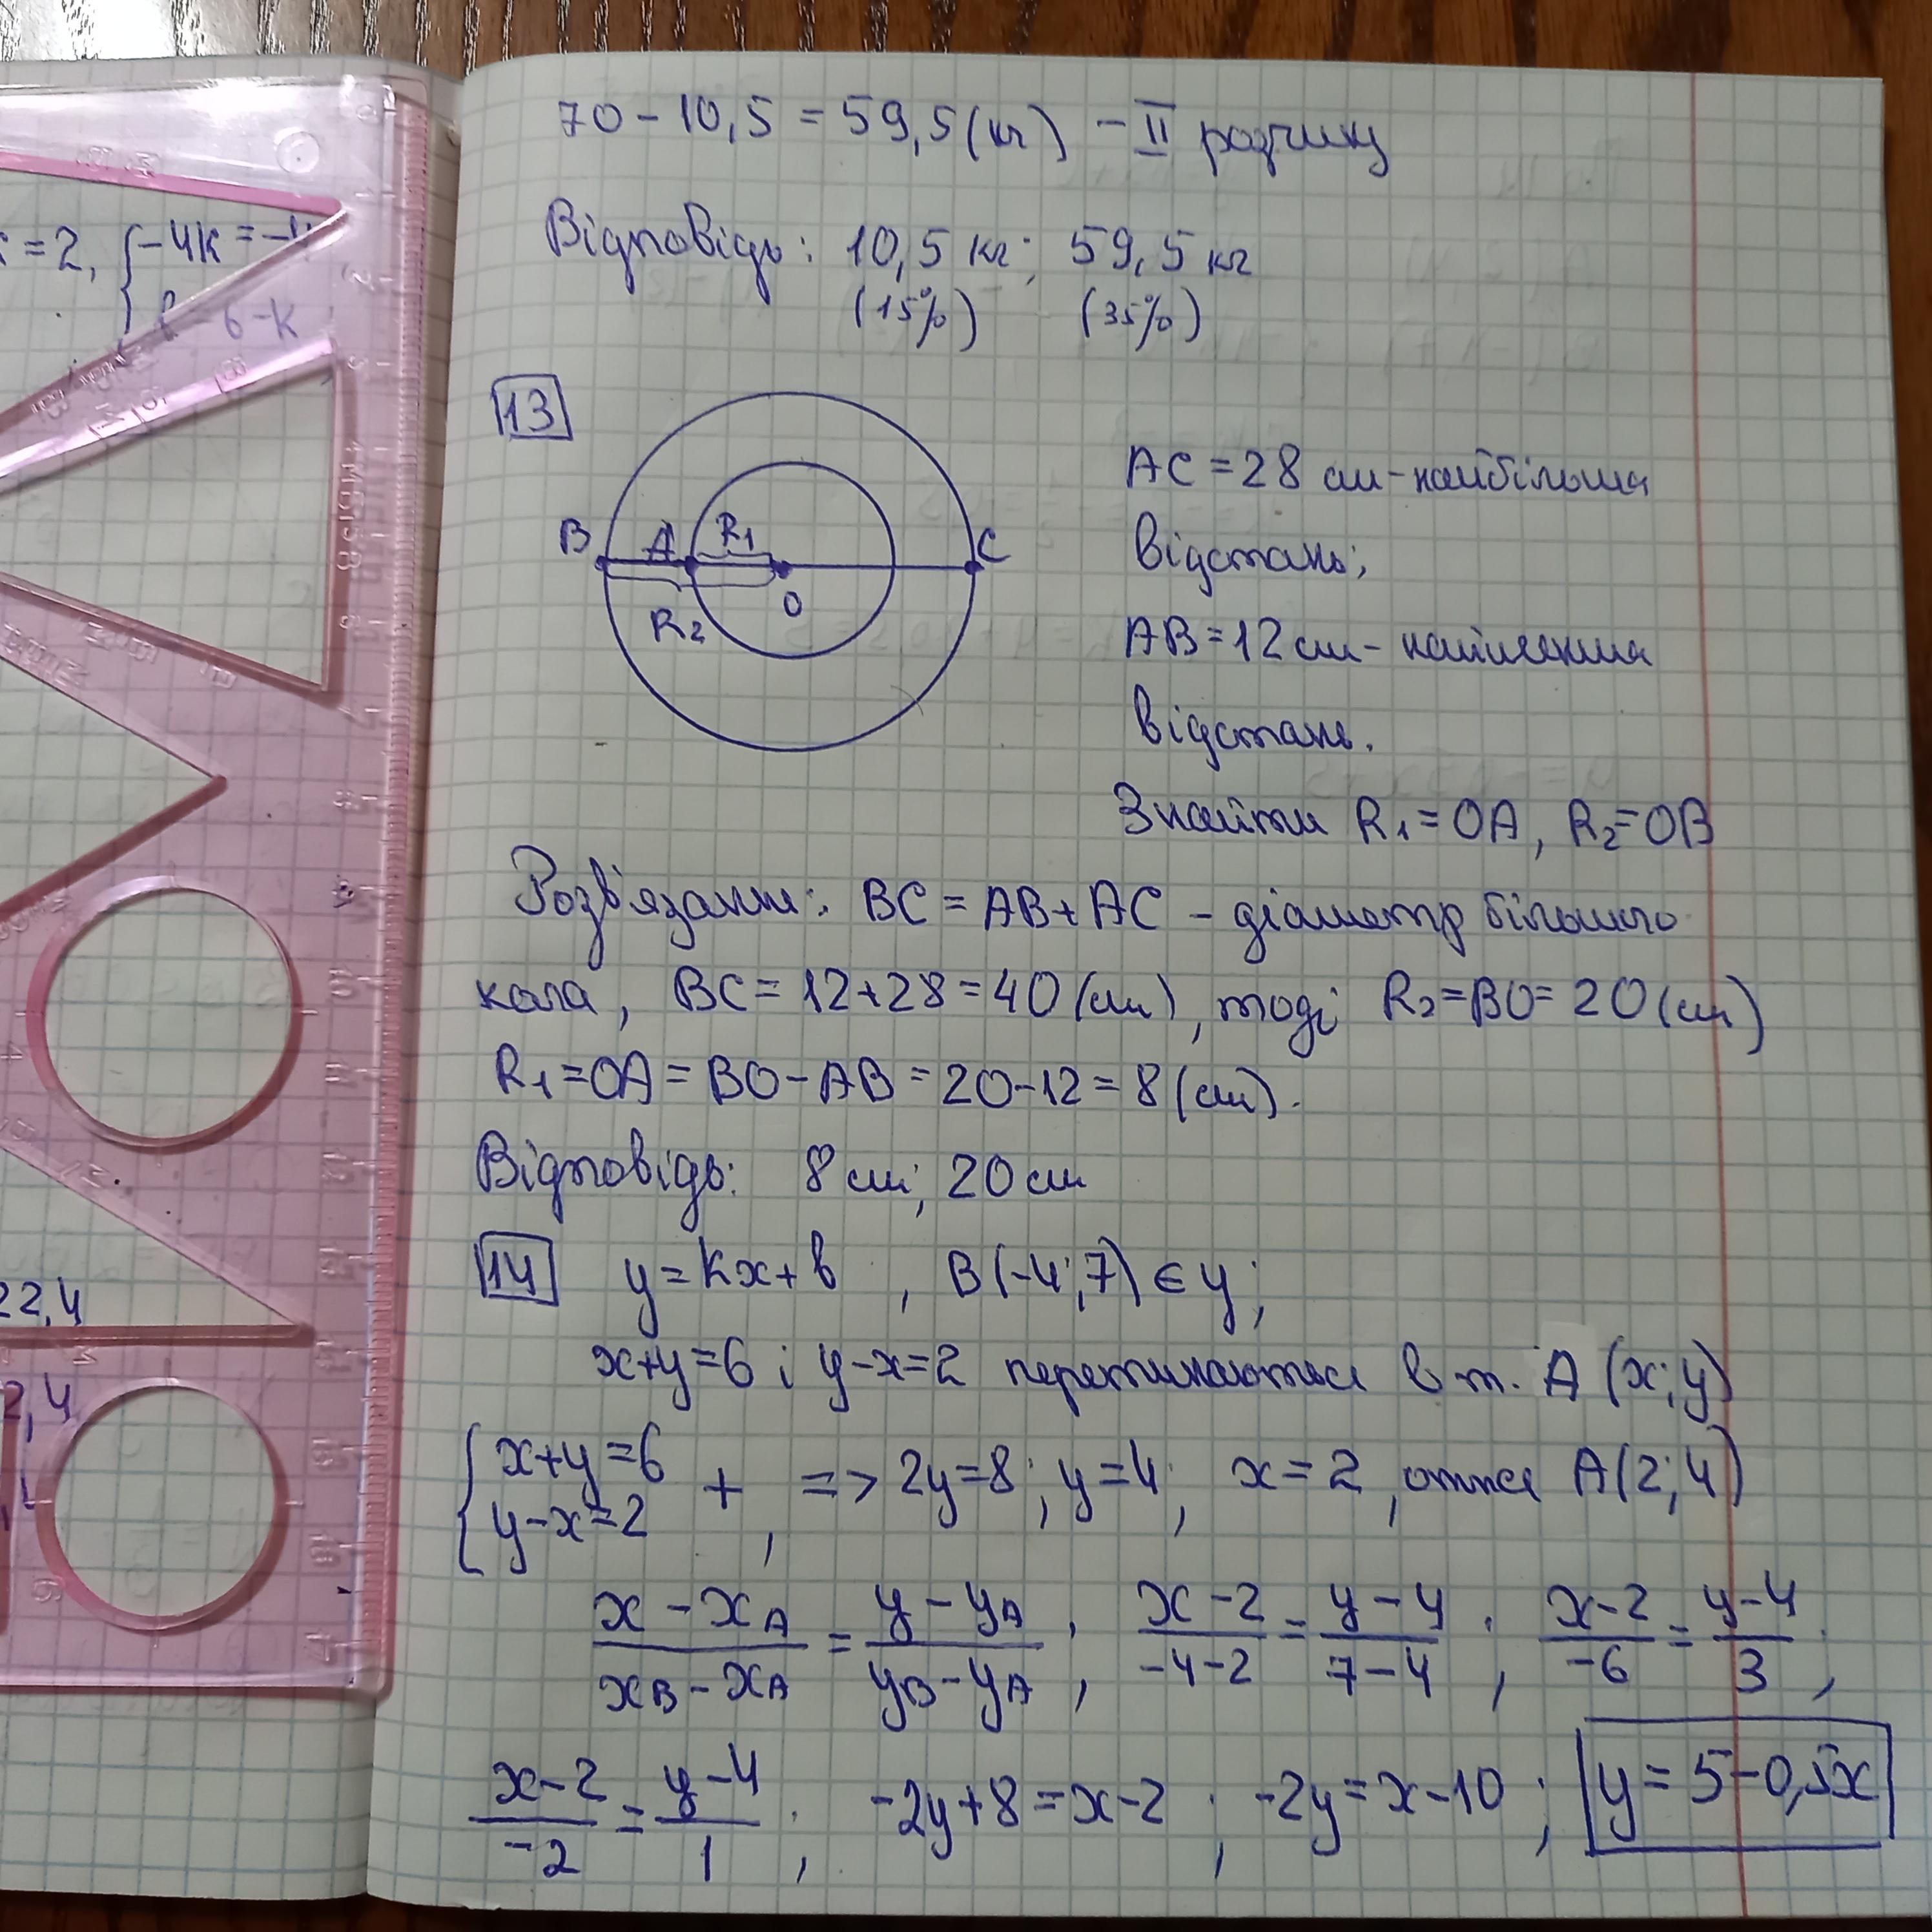 70 - 10,5 = 59,5 (кг) - II розчину
Відповідь: 10,5 кг; 59,5 кг
(15%) (35%)
13
B A R1 O C
R2
AC = 28 см - найбільша
відстань;
AB = 12 см - найменша
відстань.
Знайти R1 = OA, R2 = OB
Розв'язання: BC = AB + AC - діаметр більшого
кола, BC = 12 + 28 = 40 (см), тоді R2 = BO = 20 (см)
R1 = OA = BO - AB = 20 - 12 = 8 (см).
Відповідь: 8 см; 20 см
14 y = kx + b, B(-4; 7) ∈ y;
x + y = 6 і y - x = 2 перетинаються в т. A (x; y)
{ x + y = 6
y - x = 2 +, => 2y = 8; y = 4; x = 2, отже A(2; 4)
(x - xA)/(xB - xA) = (y - yA)/(yB - yA); (x - 2)/(-4 - 2) = (y - 4)/(7 - 4); (x - 2)/(-6) = (y - 4)/3;
(x - 2)/(-2) = (y - 4)/1; -2y + 8 = x - 2; -2y = x - 10; y = 5 - 0,5x
= 2, { -4k = -4
6 - k
22,4
2,4